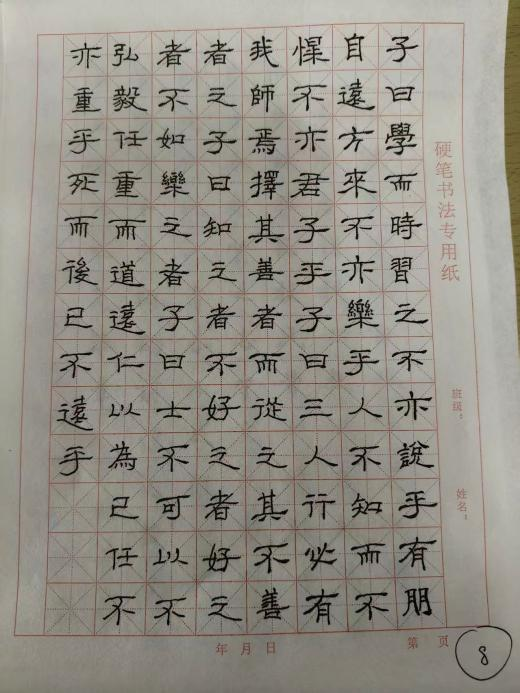 子曰學而時習之不亦說乎有朋
自遠方來不亦樂乎人不知而不
愠不亦君子乎子曰三人行必有
我師焉擇其善者而從之其不善
者之子曰知之者不如好之者好之
者不如樂之者子曰士不可以不
弘毅任重而道遠仁以為己任不
亦重乎死而後已不遠乎
硬笔书法专用纸
班级：
姓名：
年月日
第页
8